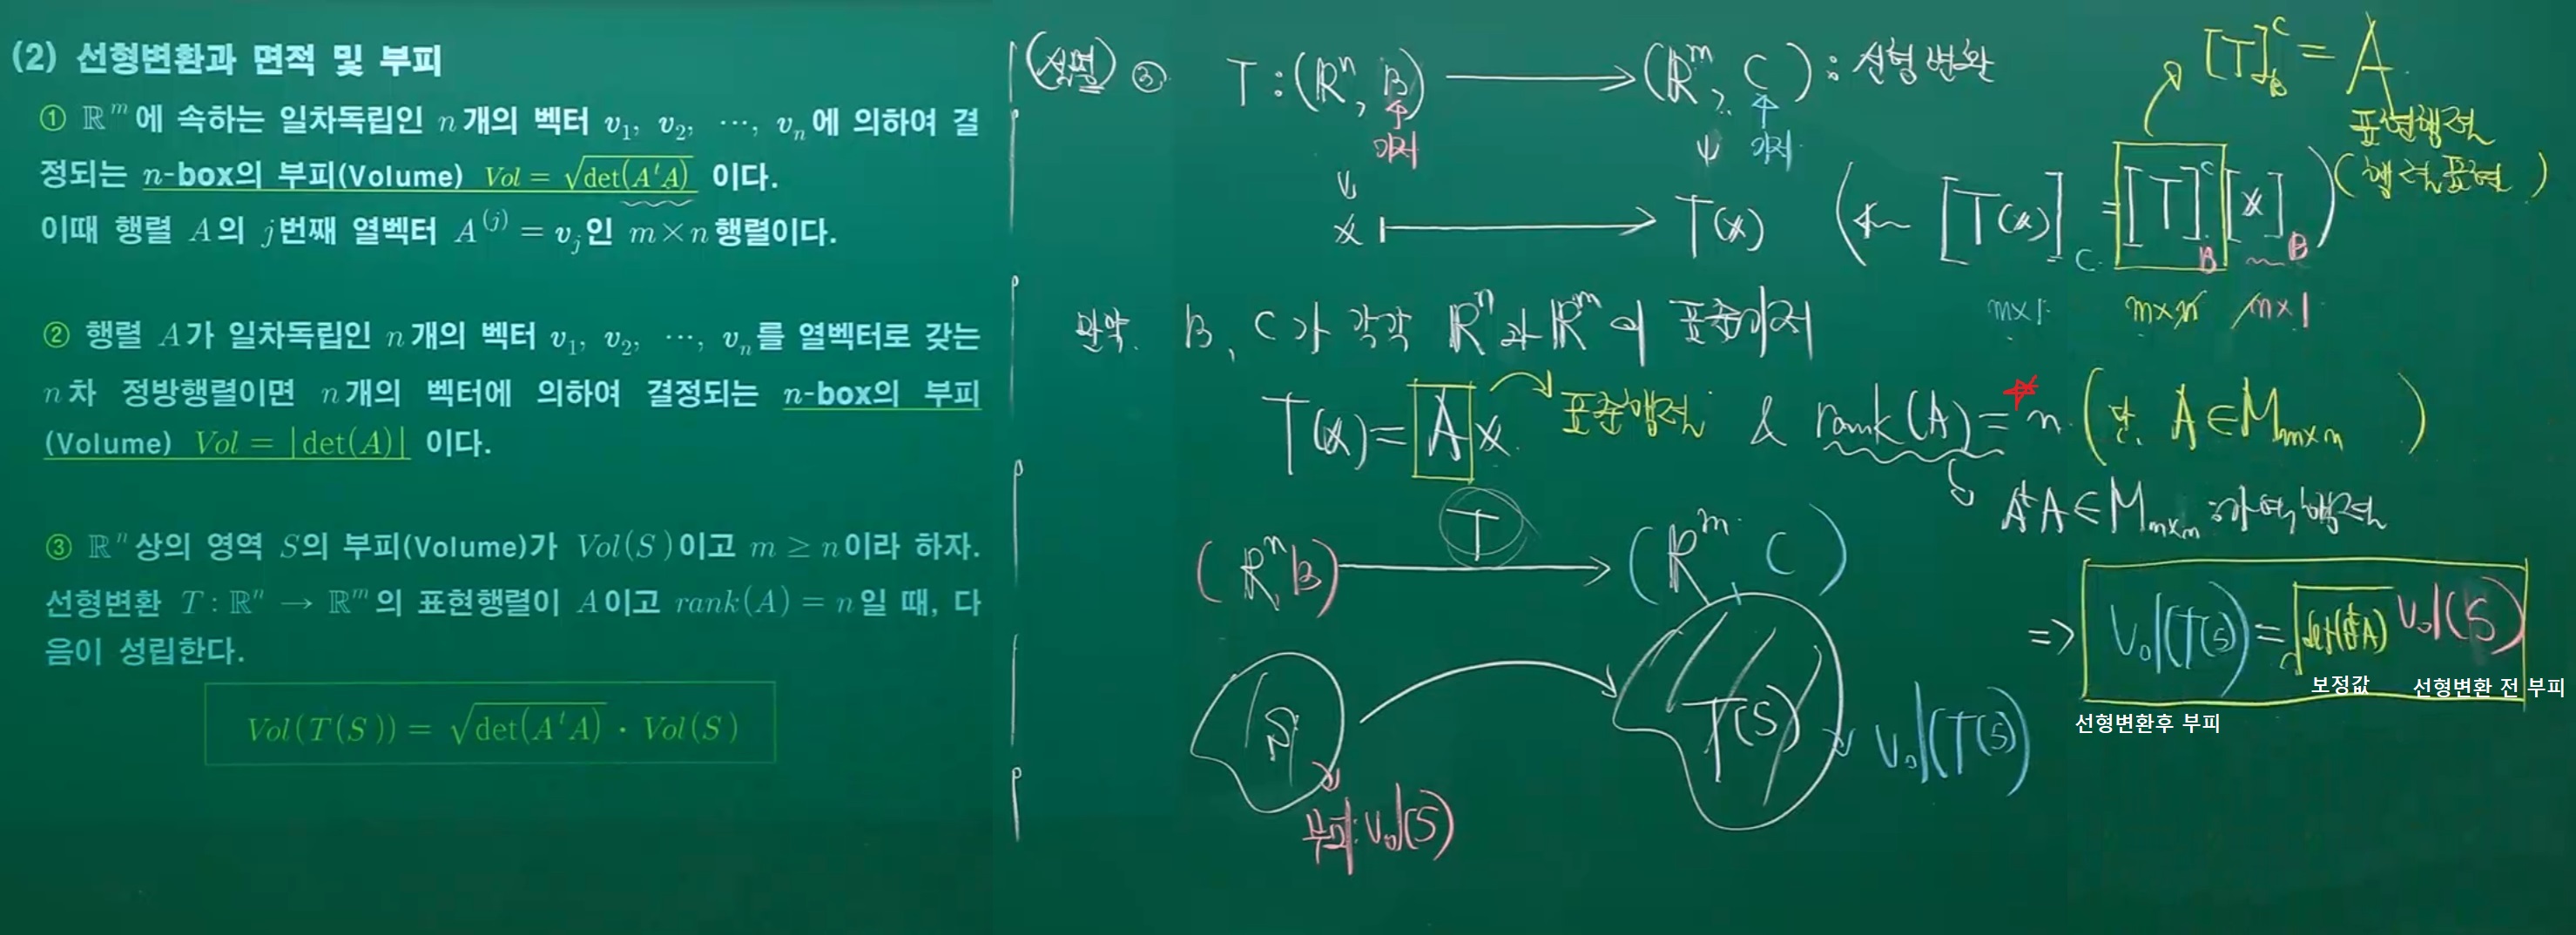 (2) 선형변환과 면적 및 부피
① ℝᵐ에 속하는 일차독립인 n개의 벡터 v₁, v₂, ⋯, vₙ에 의하여 결
정되는 n-box의 부피(Volume) Vol = √det(AᵗA) 이다.
이때 행렬 A의 j번째 열벡터 A⁽ʲ⁾ = vⱼ인 m×n행렬이다.
② 행렬 A가 일차독립인 n개의 벡터 v₁, v₂, ⋯, vₙ를 열벡터로 갖는
n차 정방행렬이면 n개의 벡터에 의하여 결정되는 n-box의 부피
(Volume) Vol = |det(A)| 이다.
③ ℝⁿ상의 영역 S의 부피(Volume)가 Vol(S)이고 m ≥ n이라 하자.
선형변환 T : ℝⁿ → ℝᵐ의 표현행렬이 A이고 rank(A) = n일 때, 다
음이 성립한다.
Vol(T(S)) = √det(AᵗA) · Vol(S)
(설명) ③ T : (ℝⁿ, B) → (ℝᵐ, C) : 선형변환
기저 기저
[T]_B^C = A
표현행렬
(행렬표현)
x ↦ T(x) (← [T(x)]_C = [T]_B^C [x]_B)
m×1 m×n n×1
만약. B, C가 각각 ℝⁿ과 ℝᵐ의 표준기저
T(x) = A x 표준행렬 & rank(A) = n (단, A ∈ M_{m×n})
AᵗA ∈ M_{n×n} : 가역행렬
(ℝⁿ, B) T (ℝᵐ, C)
S T(S)
부피: Vol(S)
Vol(T(S))
⇒ Vol(T(S)) = √det(AᵗA) Vol(S)
보정값 선형변환 전 부피
선형변환후 부피